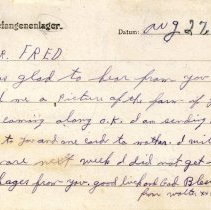 efangenenlager. Datum: aug 27,
R. FRED
s glad to hear from you
d me a picture of the farm of y
coming along o.k. I am sending
to you and one card to mother. I will
ware next week I did not get
kages from you. good luck and God Bless
from walt. xx